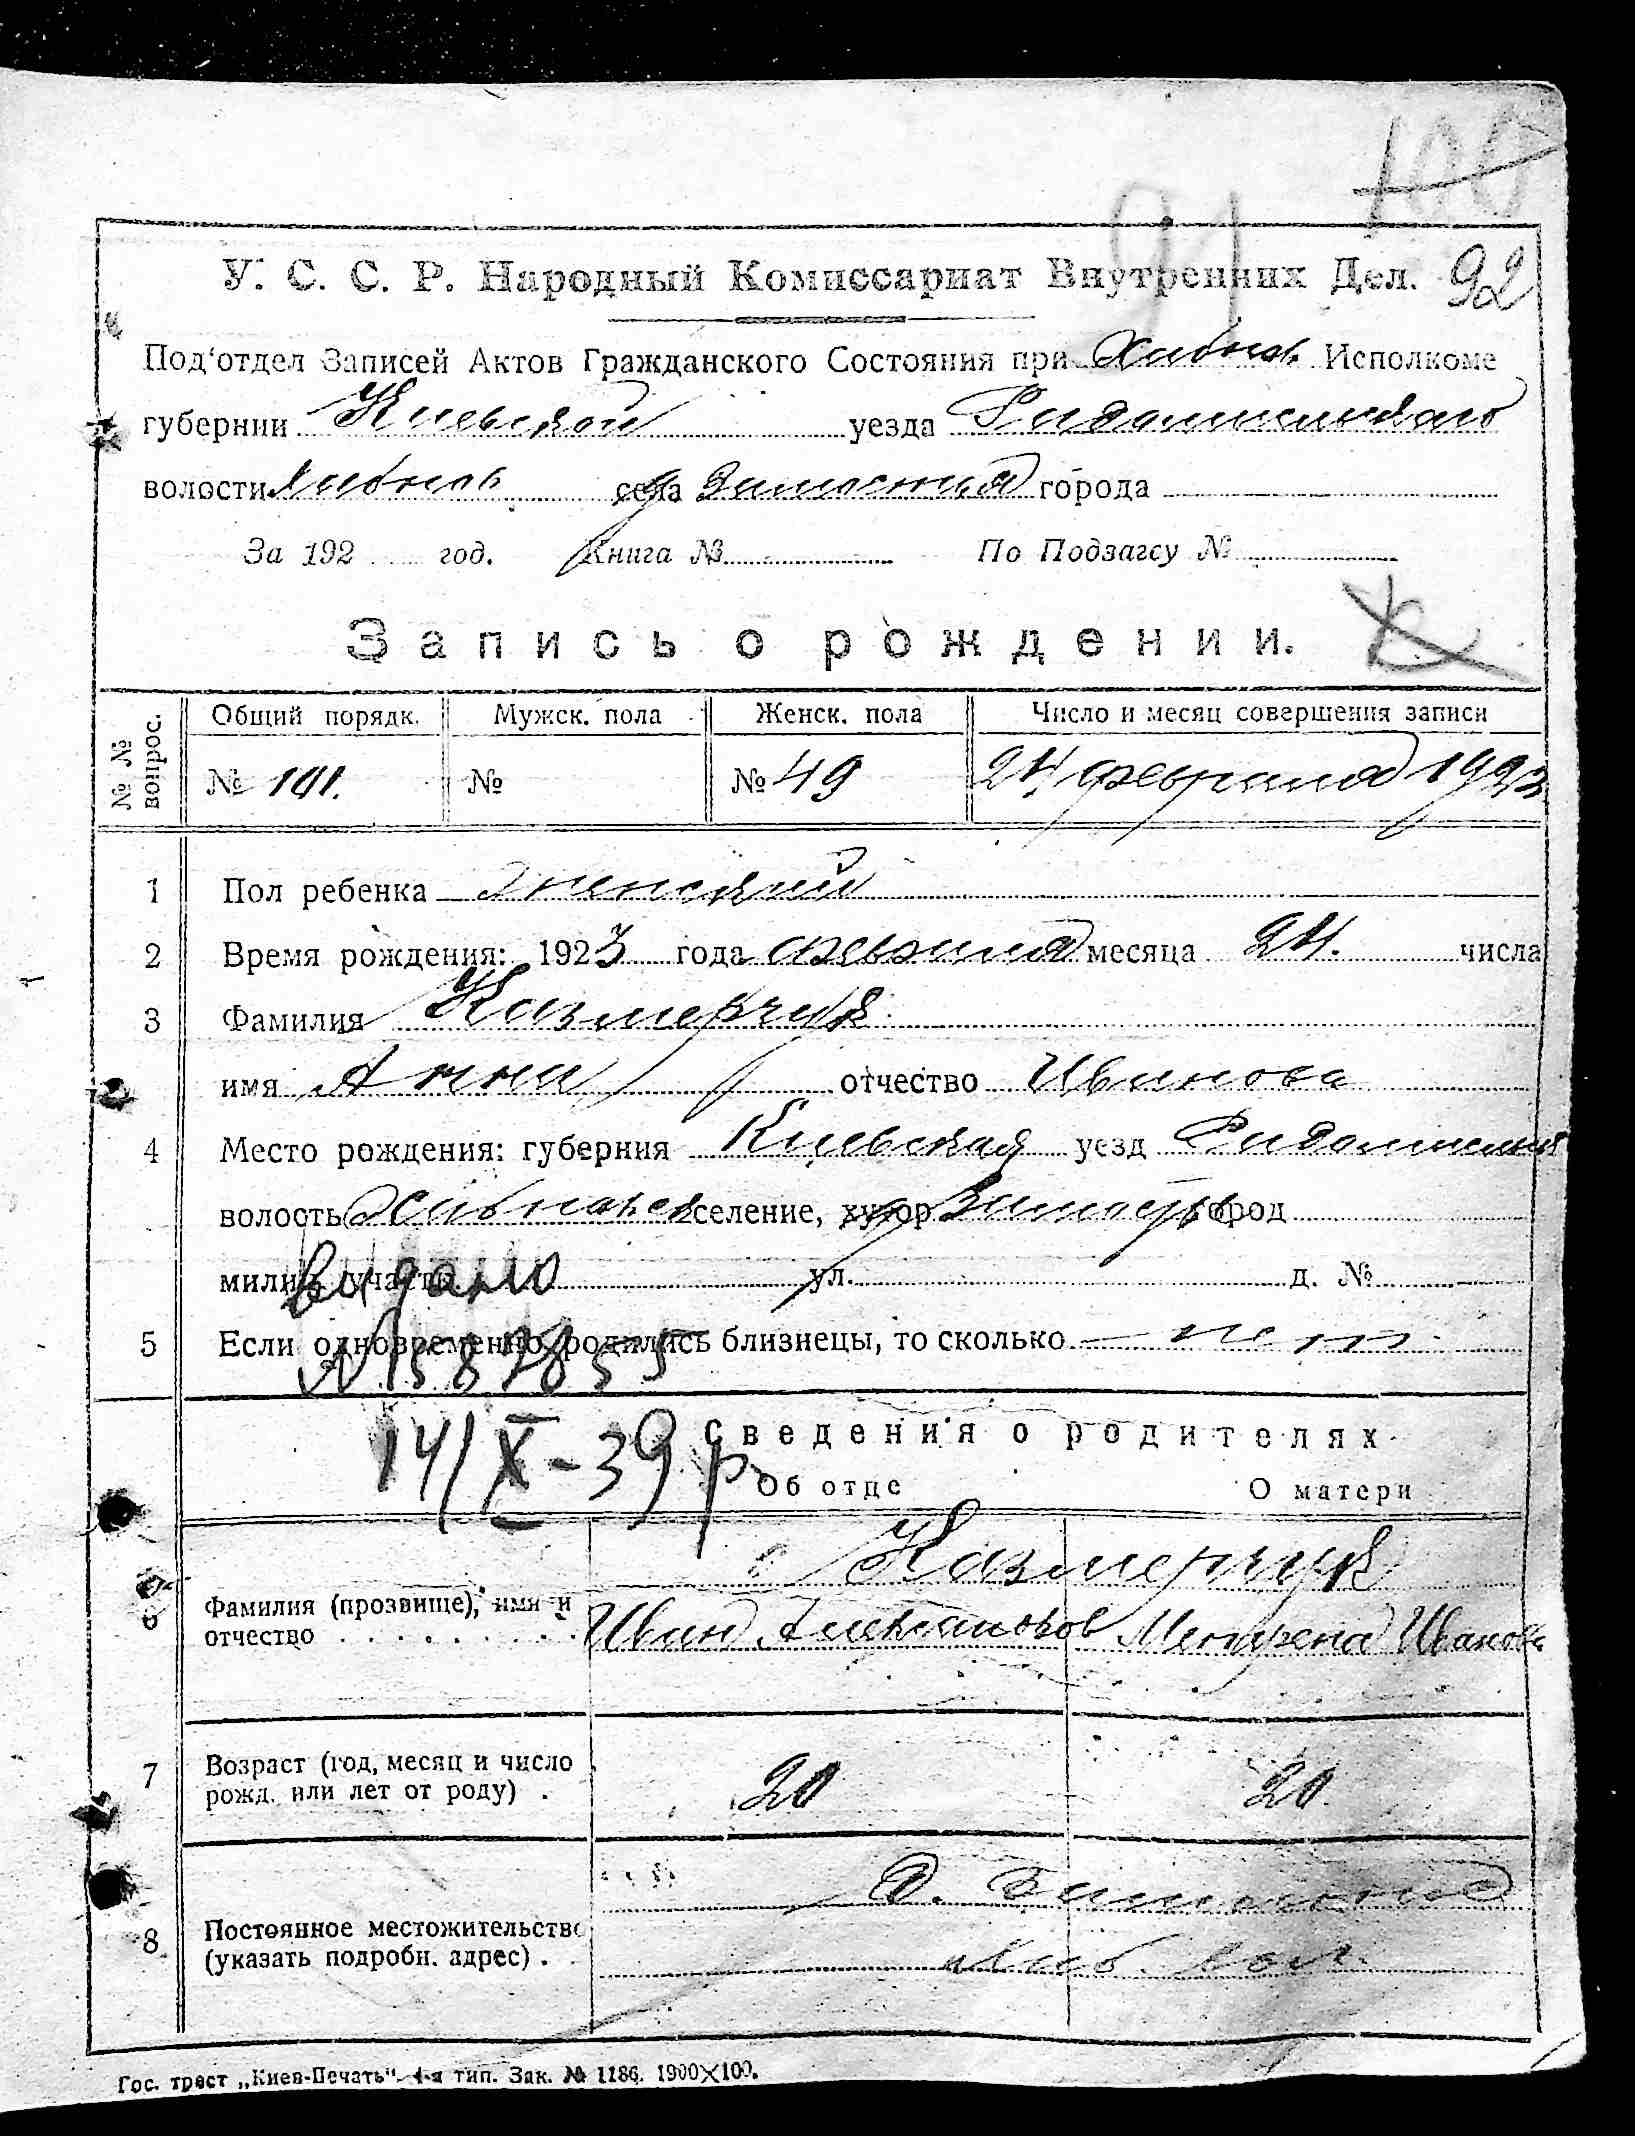 100
91
У. С. С. Р. Народный Комиссариат Внутренних Дел. 92
Под'отдел Записей Актов Гражданского Состояния при Хабнов. Исполкоме
губернии Киевской уезда Радомысльскаго
волости Хабнов села д Зимовища города
За 192 год. Книга № По Подзагсу №
Запись о рождении.
№ № вопрос. Общий порядк. Мужск. пола Женск. пола Число и месяц совершения записи
№ 101. № № 49 24 февраля 1923
1 Пол ребенка женский
2 Время рождения: 1923 года февраля месяца 24. числа
3 Фамилия Казмерчук
имя Анна отчество Иванова
4 Место рождения: губерния Киевская уезд
волость селение, хутор город
милиц. участ. ул. д. №
видано
5 Если одновременно родились близнецы, то сколько нет
14/X-39 р
Сведения о родителях
Об отце О матери
Казмерчук
6 Фамилия (прозвище), имя и
отчество Иван Александров Мотрена Иванова
7 Возраст (год, месяц и число
рожд. или лет от роду) . 20 20
Д. Зимовища
8 Постоянное местожительство
(указать подробн. адрес) . Хаб. вол.
Гос. трест „Киев-Печать". 4-я тип. Зак. № 1186. 1900×100.